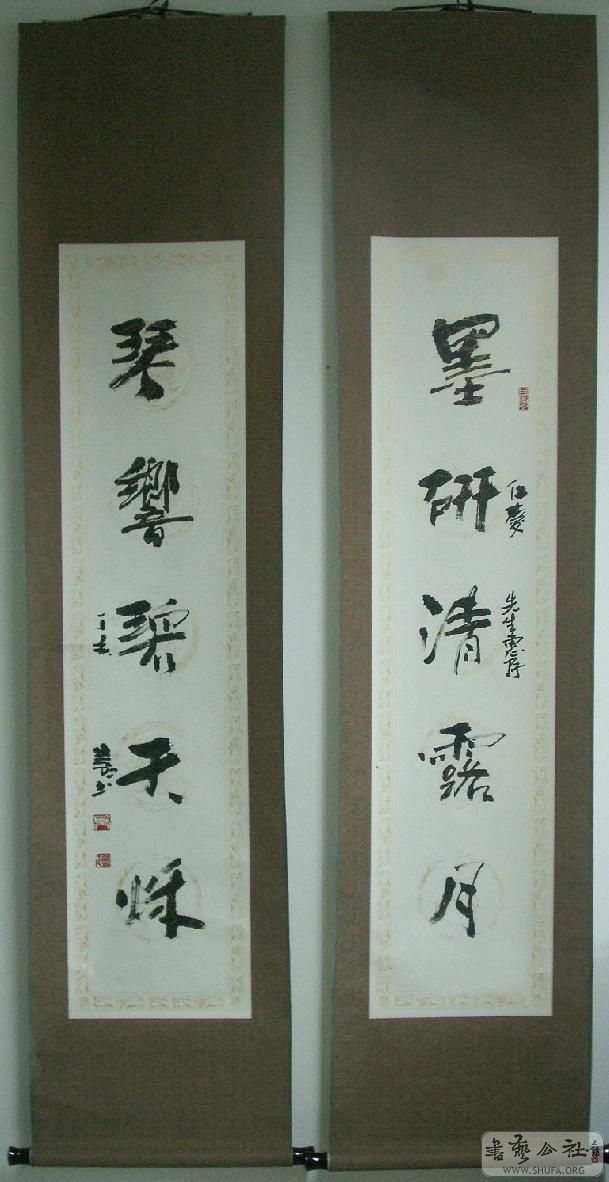 墨研清露月
先生惠存
琴響碧天秌
丁亥
書藝公社
WWW.SHUFA.ORG